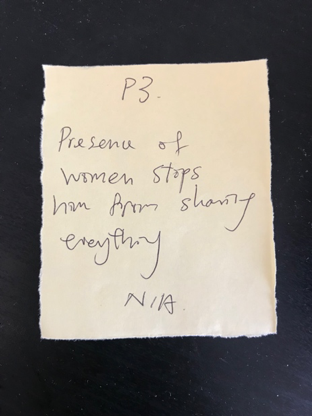 P3.
Presence of
women stops
him from sharing
everything
N/A.